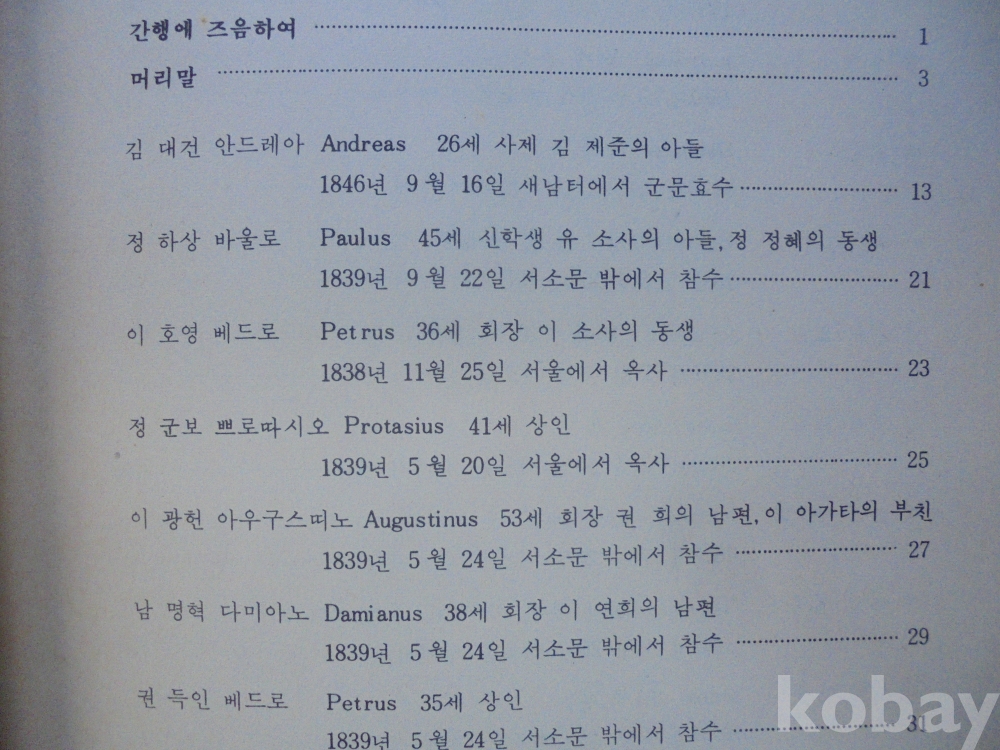 간행에 즈음하여 ································ 1
머리말 ································ 3
김 대건 안드레아 Andreas 26세 사제 김 제준의 아들
1846년 9월 16일 새남터에서 군문효수 ················ 13
정 하상 바울로 Paulus 45세 신학생 유 소사의 아들, 정 정혜의 동생
1839년 9월 22일 서소문 밖에서 참수 ················ 21
이 호영 베드로 Petrus 36세 회장 이 소사의 동생
1838년 11월 25일 서울에서 옥사 ················ 23
정 군보 쁘로따시오 Protasius 41세 상인
1839년 5월 20일 서울에서 옥사 ················ 25
이 광헌 아우구스띠노 Augustinus 53세 회장 권 희의 남편, 이 아가타의 부친
1839년 5월 24일 서소문 밖에서 참수 ················ 27
남 명혁 다미아노 Damianus 38세 회장 이 연희의 남편
1839년 5월 24일 서소문 밖에서 참수 ················ 29
권 득인 베드로 Petrus 35세 상인
1839년 5월 24일 서소문 밖에서 참수 ················ 31
kobay